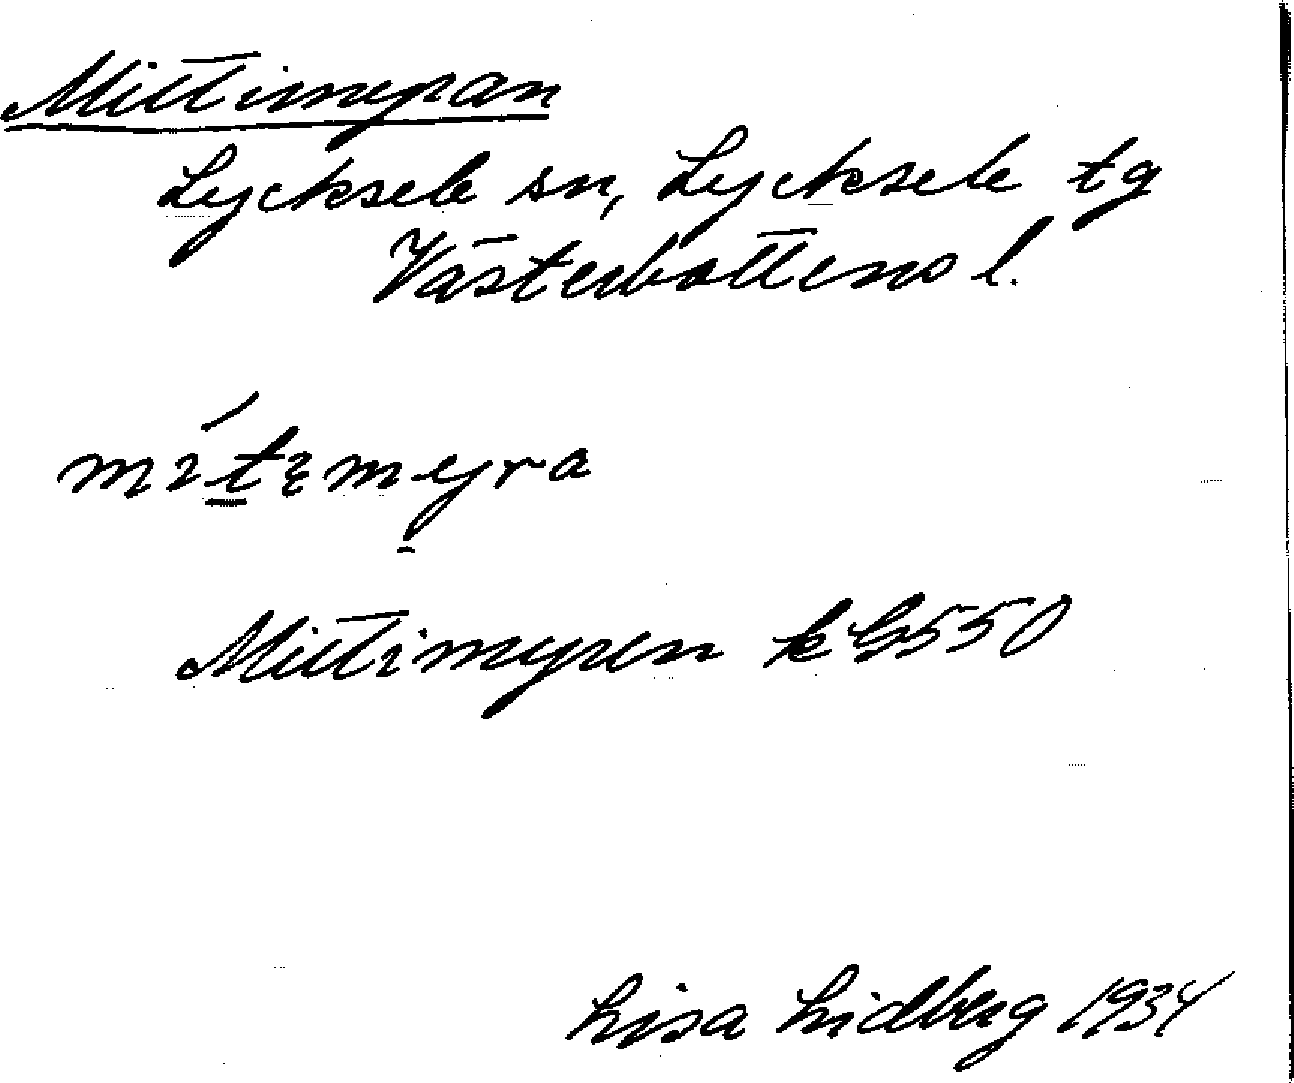 Mittimyran
Lycksele sn, Lycksele tg
Västerbottens l.
Mittimyren
Lisa Lidberg 1934